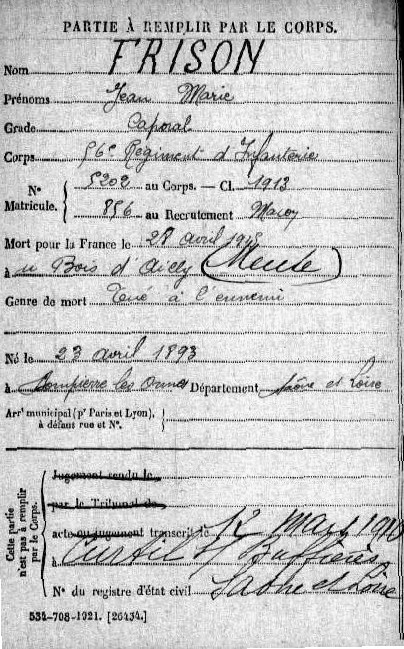 PARTIE À REMPLIR PAR LE CORPS.
Nom FRISON
Prénoms Jean Marie
Grade Caporal
Corps 56e Regiment d'Infanterie
N° Matricule. { 5202 au Corps. — Cl. 1913
886 au Recrutement Macon
Mort pour la France le 28 avril 1915
à u Bois d'Ailly (Meuse)
Genre de mort Tué à l'ennemi
Né le 23 avril 1893
à Dompierre les Ormes Département Saône et Loire
Arrt municipal (pr Paris et Lyon), à défaut rue et N°.
Cette partie n'est pas à remplir par le Corps.
Jugement rendu le
par le Tribunal de
acte ou jugement transcrit le 12 mars 191
à Curtil s/ Buffières
N° du registre d'état civil Saône et Loire
534-708-1921. [26434.]